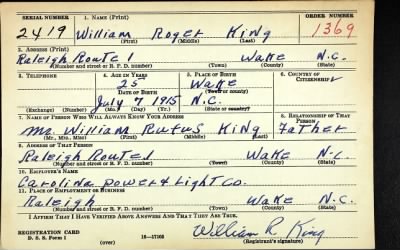 SERIAL NUMBER 1. NAME (Print) ORDER NUMBER
2419 William Roger King 1369
(First) (Middle) (Last)
2. ADDRESS (Print)
Raleigh Route 1 Wake N.C.
(Number and street or R. F. D. number) (Town) (County) (State)
3. TELEPHONE 4. AGE IN YEARS 5. PLACE OF BIRTH 6. COUNTRY OF CITIZENSHIP
25 Wake
DATE OF BIRTH (Town or county)
July 7 1915 N.C.
(Exchange) (Number) (Mo.) (Day) (Yr.) (State or country)
7. NAME OF PERSON WHO WILL ALWAYS KNOW YOUR ADDRESS 8. RELATIONSHIP OF THAT PERSON
Mr. William Rufus King Father
(Mr., Mrs., Miss) (First) (Middle) (Last)
9. ADDRESS OF THAT PERSON
Raleigh Route 1 Wake N.C.
(Number and street or R. F. D. number) (Town) (County) (State)
10. EMPLOYER'S NAME
Carolina Power & Light Co.
11. PLACE OF EMPLOYMENT OR BUSINESS
Raleigh Wake N.C.
(Number and street or R. F. D. number) (Town) (County) (State)
I AFFIRM THAT I HAVE VERIFIED ABOVE ANSWERS AND THAT THEY ARE TRUE.
REGISTRATION CARD
D. S. S. Form 1 16—17105 William R. King
(over) (Registrant's signature)